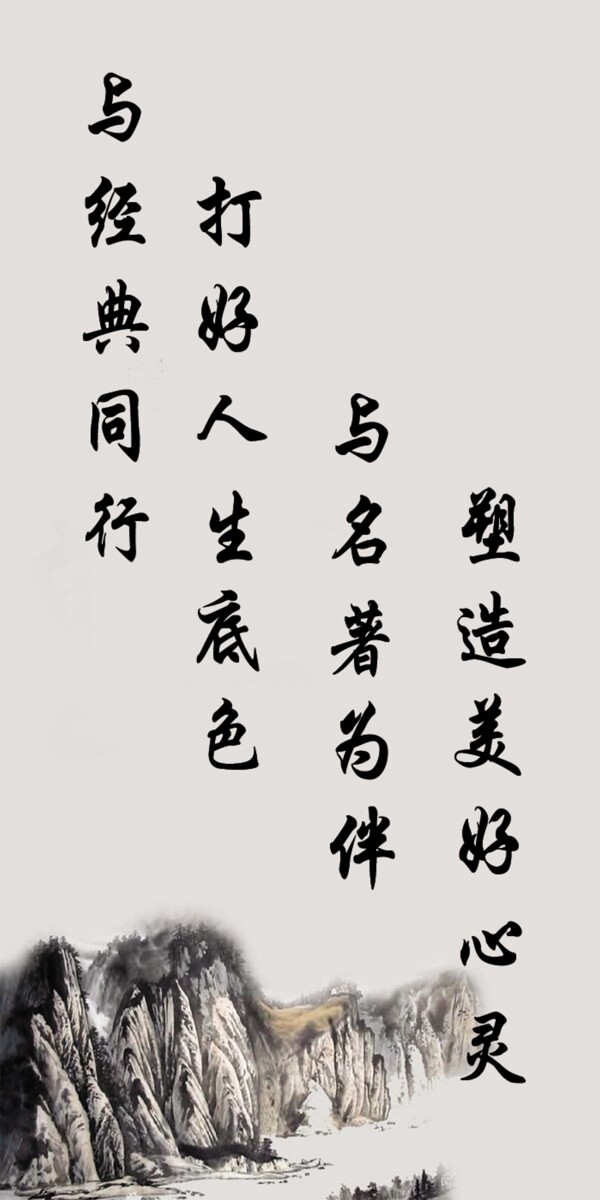 与经典同行
打好人生底色
与名著为伴
塑造美好心灵